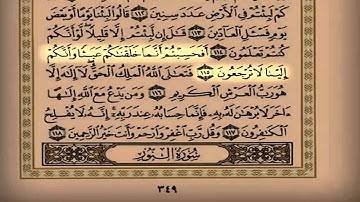 كَمْ لَبِثْتُمْ فِي ٱلْأَرْضِ عَدَدَ سِنِينَ ١١٢ قَالُوا۟ لَبِثْنَا يَوْمًا أَوْ بَعْضَ
يَوْمٍ فَسْـَٔلِ ٱلْعَآدِّينَ ١١٣ قَٰلَ إِن لَّبِثْتُمْ إِلَّا قَلِيلًا لَّوْ أَنَّكُمْ
كُنتُمْ تَعْلَمُونَ ١١٤ أَفَحَسِبْتُمْ أَنَّمَا خَلَقْنَٰكُمْ عَبَثًا وَأَنَّكُمْ
إِلَيْنَا لَا تُرْجَعُونَ ١١٥ فَتَعَٰلَى ٱللَّهُ ٱلْمَلِكُ ٱلْحَقُّ لَآ إِلَٰهَ إِلَّا
هُوَ رَبُّ ٱلْعَرْشِ ٱلْكَرِيمِ ١١٦ وَمَن يَدْعُ مَعَ ٱللَّهِ إِلَٰهًا
ءَاخَرَ لَا بُرْهَٰنَ لَهُۥ بِهِۦ فَإِنَّمَا حِسَابُهُۥ عِندَ رَبِّهِۦٓ إِنَّهُۥ لَا يُفْلِحُ
ٱلْكَٰفِرُونَ ١١٧ وَقُل رَّبِّ ٱغْفِرْ وَٱرْحَمْ وَأَنتَ خَيْرُ ٱلرَّٰحِمِينَ ١١٨
سُورَةُ ٱلنُّورِ
٣٤٩